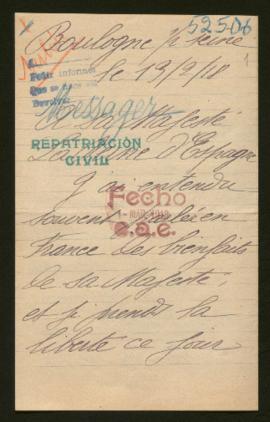 52506
Boulogne s/ seine
le 19/2/18
1
Pedir informes
Que se
Devolver
Messager
A sa Majesté
REPATRIACIÓN
CIVIL
La Reine d'Espagne
J'ai entendu
Fecho
souvent parlée en
MAR 1918
e.a.e.
France des bienfaits
de sa Majesté,
et je prends la
liberté ce jour